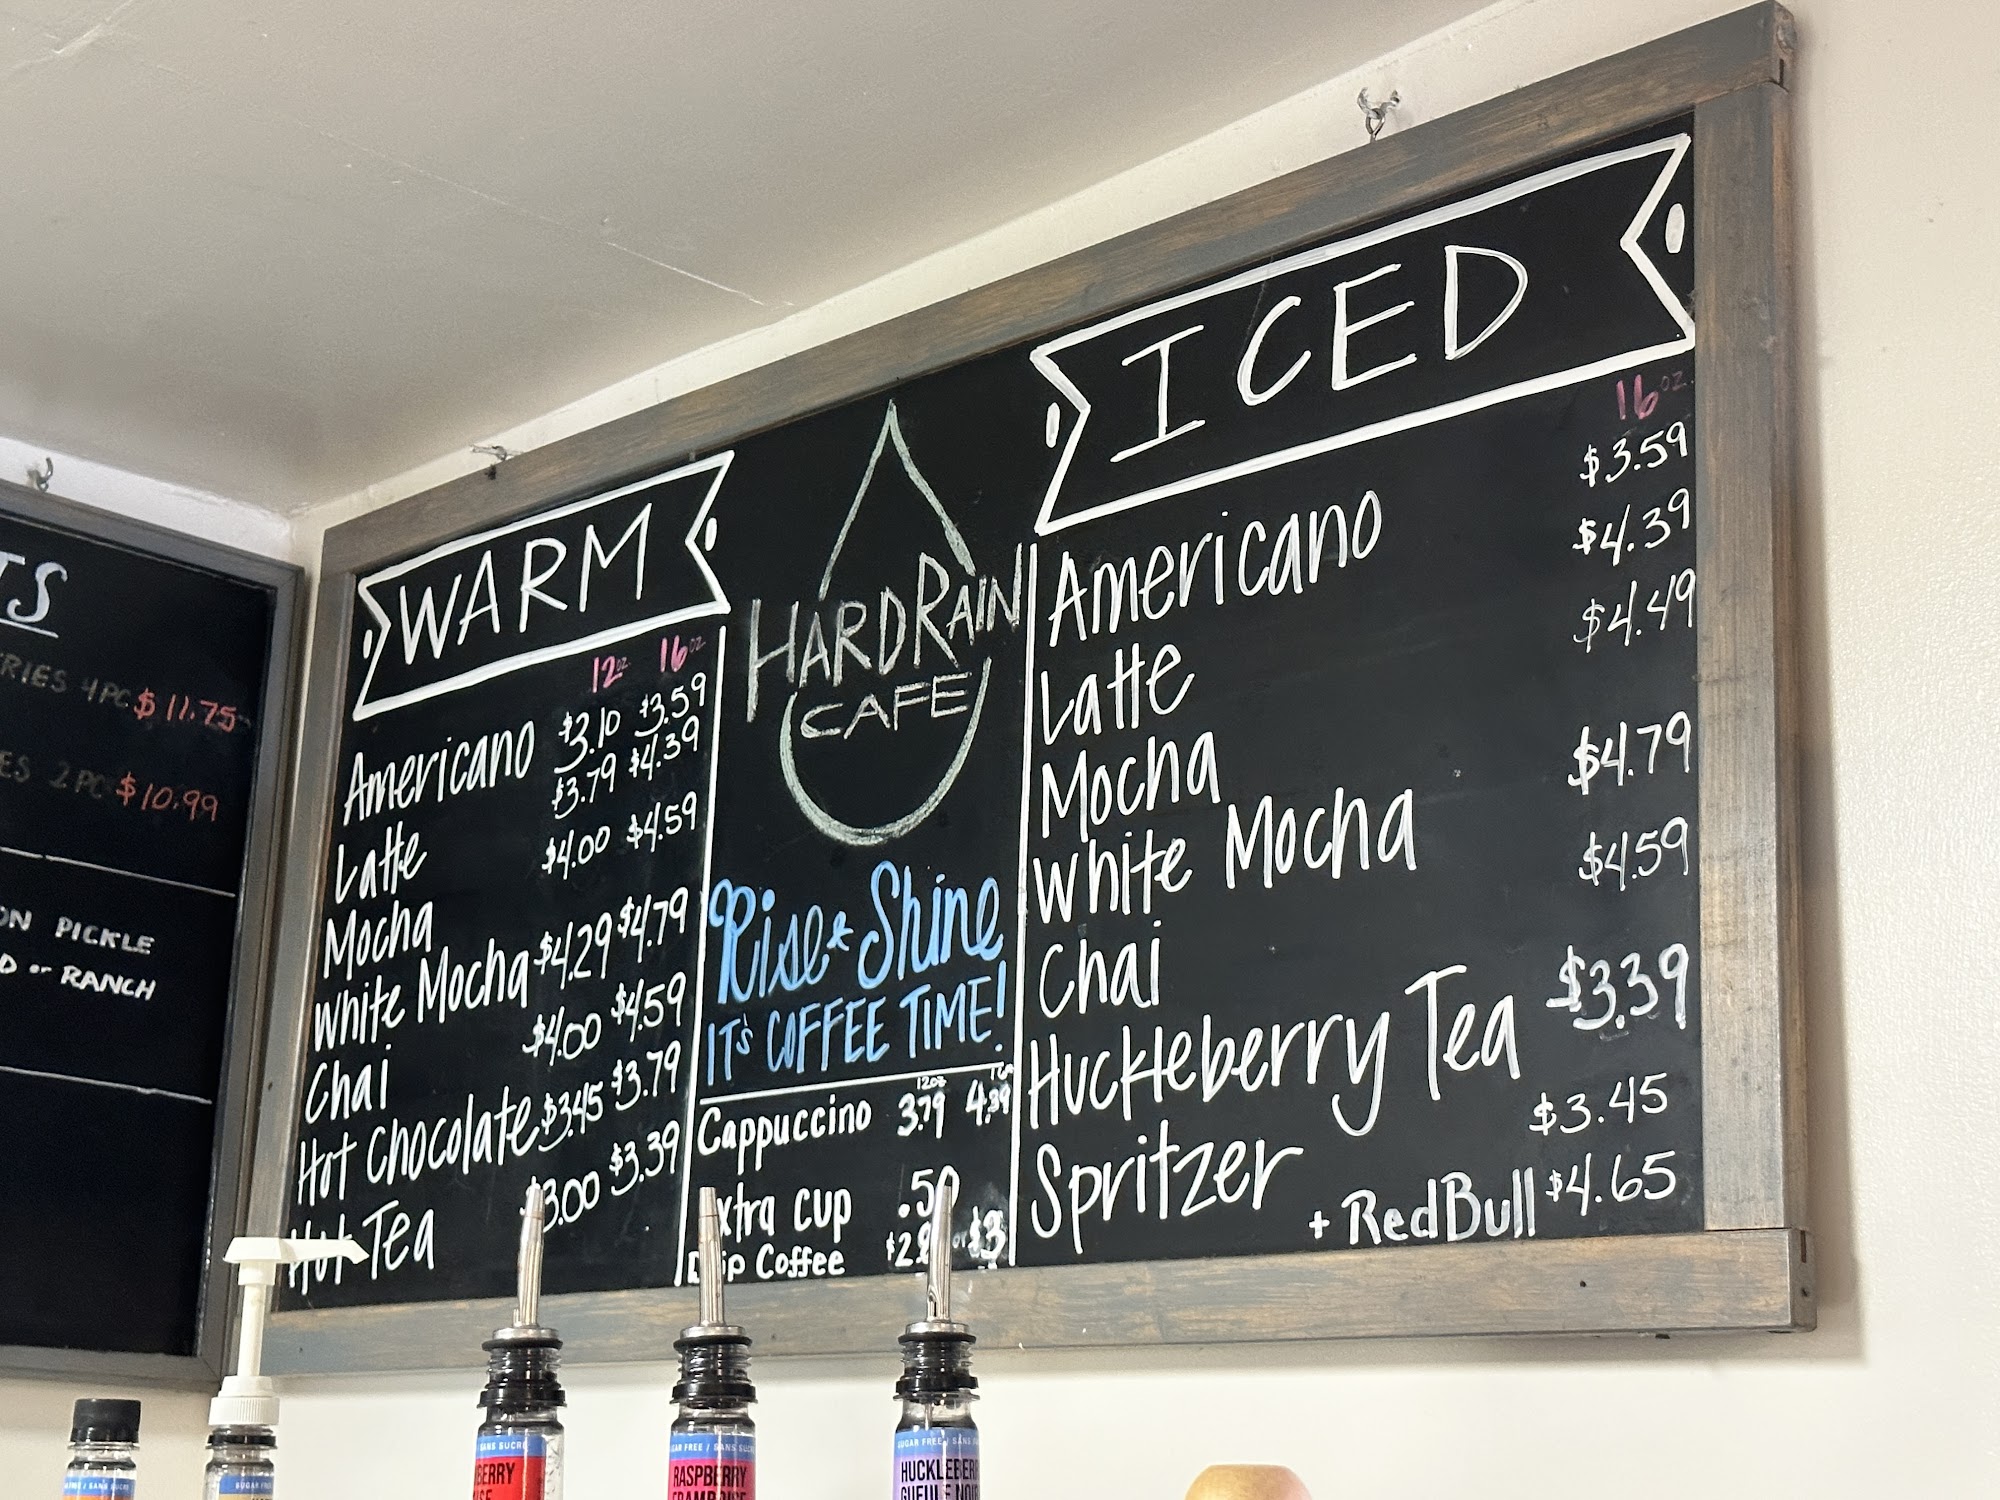 TS
RIES 4PC $11.75
ES 2PC $10.99
ON PICKLE
D or RANCH
WARM
12oz. 16oz
Americano $3.10 $3.59
Latte $3.79 $4.39
Mocha $4.00 $4.59
White Mocha $4.29 $4.79
Chai $4.00 $4.59
Hot Chocolate $3.45 $3.79
Hot Tea $3.00 $3.39
HARD RAIN
CAFE
Rise & Shine
IT'S COFFEE TIME!
12oz
Cappuccino 3.79 4.39
xtra cup .50
Drip Coffee $3
ICED
16oz.
Americano $3.59
Latte $4.39
Mocha $4.49
White Mocha $4.79
Chai $4.59
Huckleberry Tea $3.39
Spritzer $3.45
+ RedBull $4.65
FREE / SANS SUCRE
SUGAR FREE
SANS SUCRE
BERRY
SE
GAR FREE / SANS SUCR
RASPBERRY
FRAMBOISE
SUGAR FREE / SANS
HUCKLEBERR
GUEULE NOIR